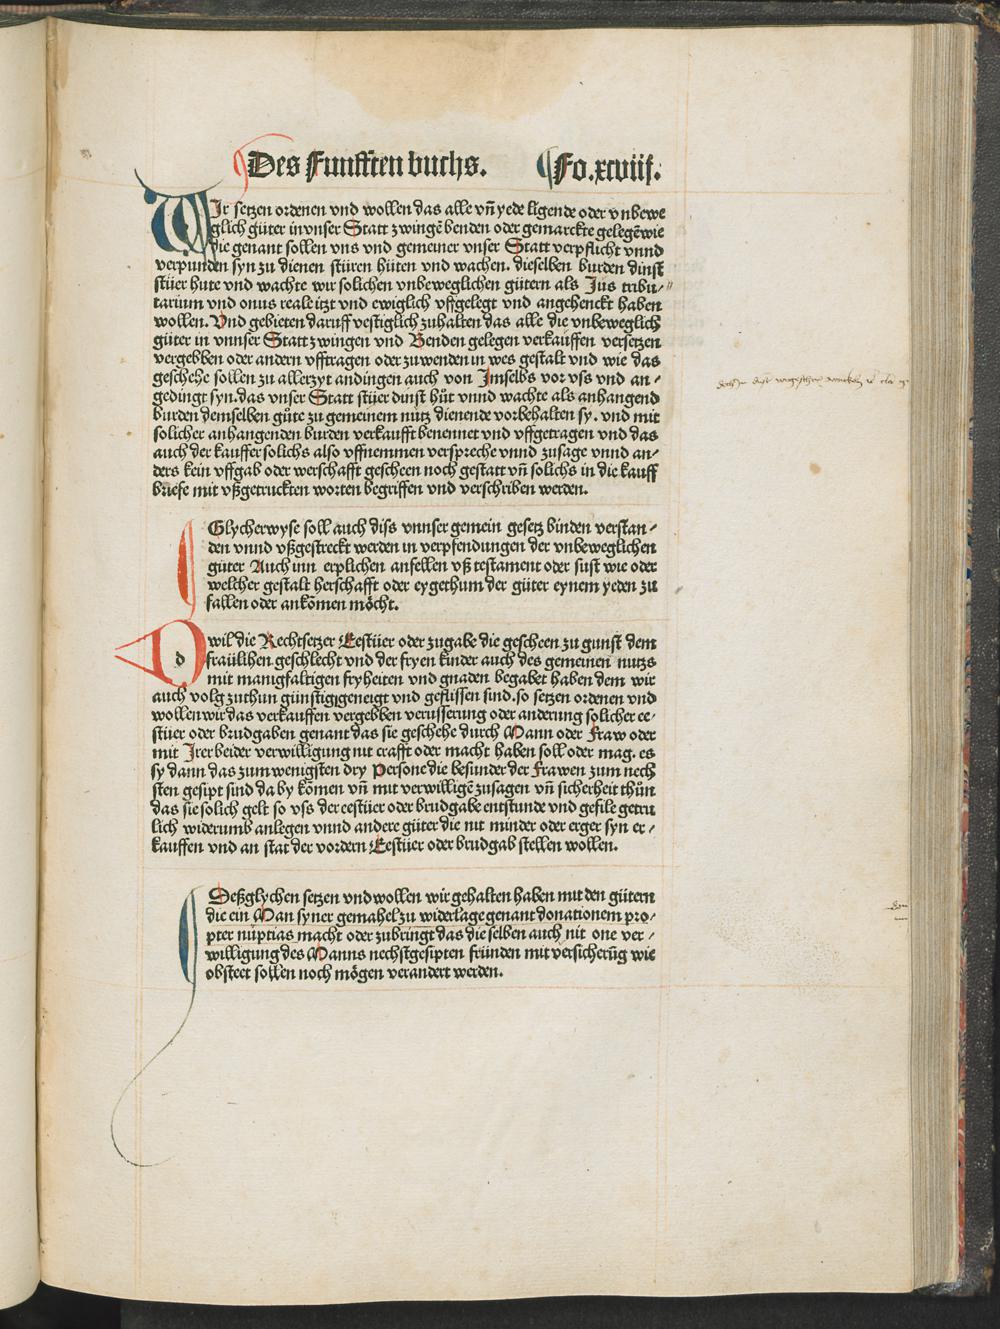 Des Funfften buchs. Fo. xcviij.
WIr setzen ordenen vnd wollen das alle vñ yede ligende oder vnbewe
glich güter in vnser Statt zwingē benden oder gemarckte gelegē wie
die genant sollen vns vnd gemeiner vnser Statt verpflicht vnnd
verpunden syn zu dienen stüren hüten vnd wachen. dieselben burden dinst
stüer hute vnd wachte wir solichen vnbeweglichen gütern als Jus tribu⸗
tarium vnd onus reale itzt vnd ewiglich vffgelegt vnd angehenckt haben
wollen. Vnd gebieten daruff vestiglich zuhalten das alle die vnbeweglich
güter in vnnser Statt zwingen vnd Benden gelegen verkauffen versetzen
vergebben oder andern vfftragen oder zuwenden in wes gestalt vnd wie das
geschehe sollen zu allerzyt andingen auch von Jmselbs vor vss vnd an⸗
gedingt syn. das vnser Statt stüer dinst hüt vnnd wachte als anhangend
burden demselben gůte zu gemeinem nutz dienende vorbehalten sy. vnd mit
solicher anhangenden burden verkaufft benennet vnd vffgetragen vnd das
auch der kauffer solichs also vffnemmen verspreche vnnd zusage vnnd an⸗
ders kein vffgab oder werschafft gescheen noch gestatt vñ solichs in die kauff
briefe mit vßgetruckten worten begriffen vnd verschriben werden.
Glycherwyse soll auch diss vnnser gemein gesetz binden verstan⸗
den vnnd vßgestreckt werden in verpfendungen der vnbeweglichen
güter Auch inn erplichen anfellen vß testament oder sust wie oder
welcher gestalt herschafft oder eygethum der güter eynem yeden zu
fallen oder ankōmen möcht.
d
Dwil die Rechtsetzer Eestüer oder zugabe die gescheen zu gunst dem
fraülihen geschlecht vnd der fryen kinder auch des gemeinen nutzs
mit manigfaltigen fryheiten vnd gnaden begabet haben dem wir
auch volg zuthun günstig geneigt vnd geflissen sind. so setzen ordenen vnd
wollen wir das verkauffen vergebben verusserung oder anderung solicher ee⸗
stüer oder brudgaben genant das sie geschehe durch Mann oder Fraw oder
mit Jrer beider verwilligung nit crafft oder macht haben soll oder mag. es
sy dann das zum wenigsten dry Persone die besunder der Frawen zum nech
sten gesipt sind da by kōmen vñ mit verwilligē zusagen vñ sicherheit thün
das sie solich gelt so vss der eestüer oder brudgabe entstunde vnd gefile getru
lich widerumb anlegen vnnd andere güter die nit minder oder erger syn er⸗
kauffen vnd an stat der vordern Eestüer oder brudgab stellen wollen.
Deßglychen setzen vnd wollen wir gehalten haben mit den gütern
die ein Man syner gemahel zu widerlage genant donationem pro⸗
pter nuptias macht oder zubringt das die selben auch nit one ver⸗
willigung des Manns nechstgesipten fründen mit versicherūg wie
obsteet sollen noch mögen verandert werden.